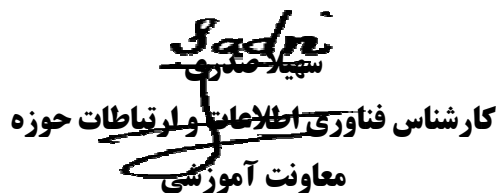 Sadri
سهیلا صدری
کارشناس فناوری اطلاعات و ارتباطات حوزه
معاونت آموزشی